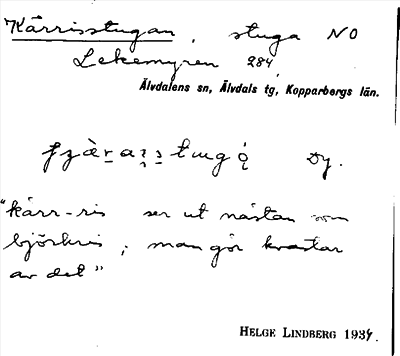 Kärrisstugan, stuga NO
Lekemyren 284,
Älvdalens sn, Älvdals tg, Kopparbergs län.
Dy.
"kärr-ris ser ut nästan som
björkris; man gör kvastar
av det"
HELGE LINDBERG 1934.